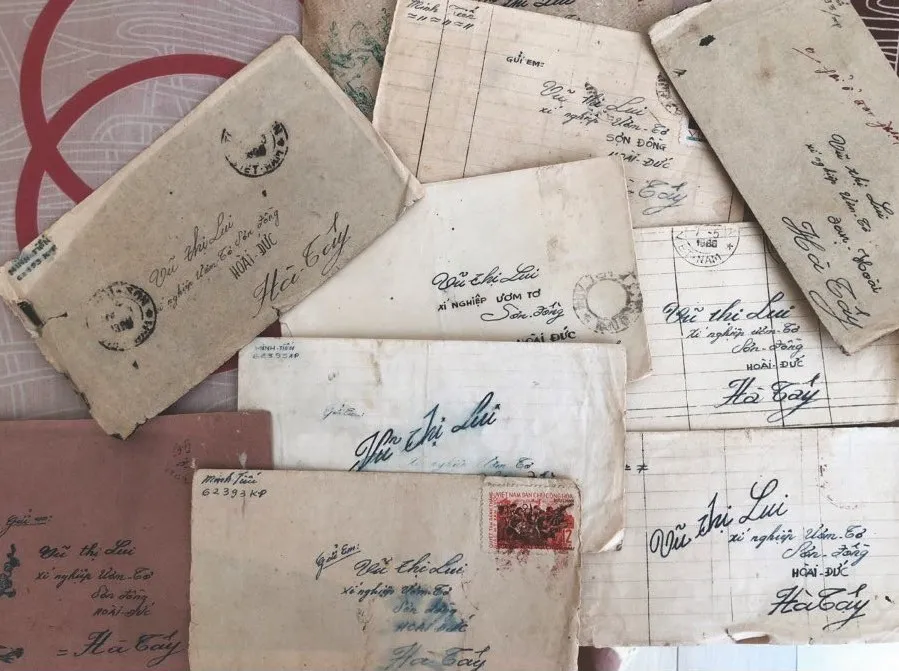 Vũ thị Lui
Minh Tiến
="="="=
GỬI EM:
Vũ Thị Lui
xí nghiệp Ươm-Tơ
SƠN ĐỒNG
HOÀI-ĐỨC
Hà Tây
Vũ thị Lui
xí nghiệp Ươm-Tơ
Hoài
Hà Tây
VIỆT-NAM
Vũ thị Lui
xí nghiệp Ươm Tơ Sơn Đồng
HOÀI-ĐỨC
Hà Tây
Vũ thị Lui
XÍ NGHIỆP ƯƠM TƠ
Sơn-Đồng
HOÀI ĐỨC
7-5
1966
VIỆT-NAM
Vũ thị Lui
xí nghiệp Ươm-Tơ
Sơn-Đồng
HOÀI-ĐỨC
Hà Tây
MINH-TIẾN
62393KP
Gửi Em:
Vũ thị Lui
xí nghiệp Ươm Tơ
Gửi em:
Vũ thị Lui
xí nghiệp Ươm-Tơ
Sơn Đồng
HOÀI-ĐỨC
= Hà Tây
Minh Tiến
62393KP
VIỆT NAM DÂN CHỦ CỘNG HÒA
12
Gửi Em:
Vũ thị Lui
xí nghiệp Ươm-Tơ
Sơn Đồng
HOÀI ĐỨC
Hà Tây
Vũ thị Lui
xí nghiệp Ươm-Tơ
Sơn-Đồng
HOÀI-ĐỨC
Hà Tây